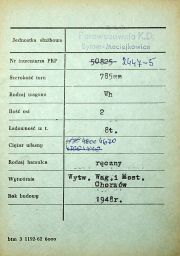 Jednostka służbowa Parowozownia K.D.
Bytom-Maciejkowice
Nr inwentarza PKP 50825 2447-S
Szerokość toru 785mm
Rodzaj wagonu Wh
Ilość osi 2
Ładowność w t. 8t.
Ciężar własny 4800 4470
Rodzaj hamulca ręczny
Wytwórnia Wytw. Wag. i Most.
Chorzów
Rok budowy 1948r.
btm 3 1192-62 6000